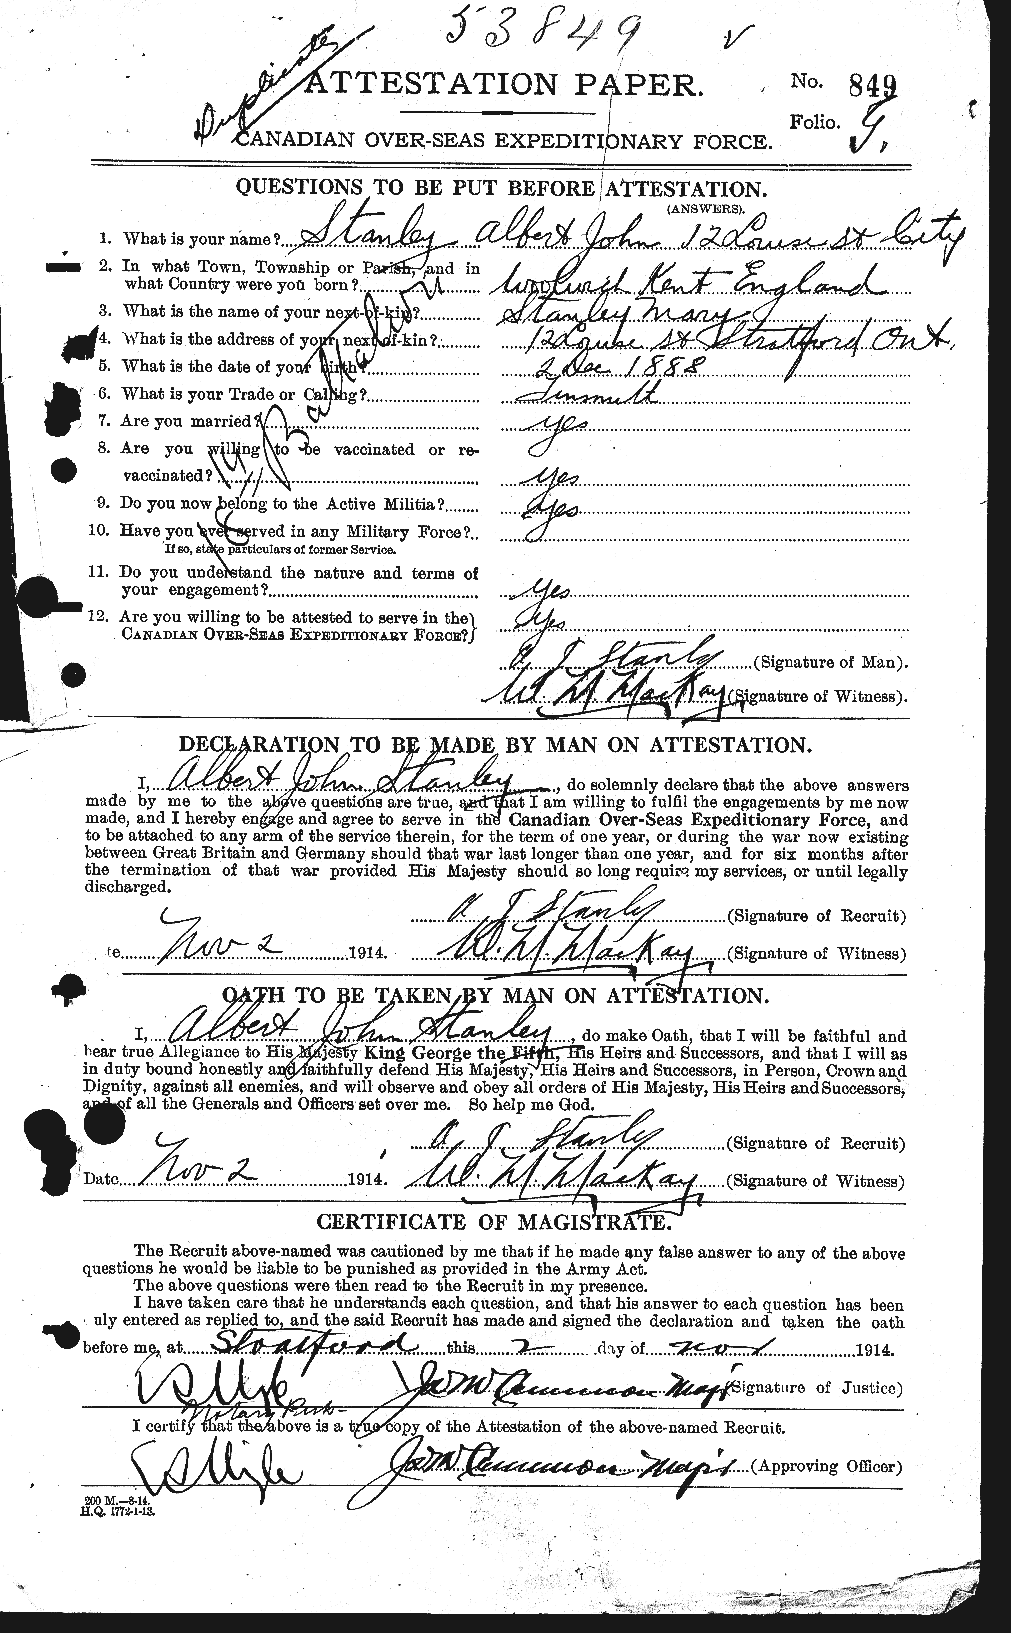 53849
Duplicate
ATTESTATION PAPER.
No. 849
Folio. G.
CANADIAN OVER-SEAS EXPEDITIONARY FORCE.
QUESTIONS TO BE PUT BEFORE ATTESTATION.
(ANSWERS).
1. What is your name? Stanley Albert John 12 Louise St City
2. In what Town, Township or Parish, and in
what Country were you born? Woolwich Kent England
3. What is the name of your next-of-kin? Stanley Mary
4. What is the address of your next-of-kin? 12 Louise St Stratford Ont.
5. What is the date of your birth? 2 Dec 1888
6. What is your Trade or Calling? Tinsmith
7. Are you married? yes
8. Are you willing to be vaccinated or re-
vaccinated? yes
9. Do you now belong to the Active Militia? yes
10. Have you ever served in any Military Force?
If so, state particulars of former Service.
11. Do you understand the nature and terms of
your engagement? yes
12. Are you willing to be attested to serve in the
CANADIAN OVER-SEAS EXPEDITIONARY FORCE? yes
18th Battalion
A J Stanly (Signature of Man).
W. M. MacKay (Signature of Witness).
DECLARATION TO BE MADE BY MAN ON ATTESTATION.
I, Albert John Stanley, do solemnly declare that the above answers
made by me to the above questions are true, and that I am willing to fulfil the engagements by me now
made, and I hereby engage and agree to serve in the Canadian Over-Seas Expeditionary Force, and
to be attached to any arm of the service therein, for the term of one year, or during the war now existing
between Great Britain and Germany should that war last longer than one year, and for six months after
the termination of that war provided His Majesty should so long require my services, or until legally
discharged.
A J Stanly (Signature of Recruit)
te Nov 2 1914. W. M. MacKay (Signature of Witness)
OATH TO BE TAKEN BY MAN ON ATTESTATION.
I, Albert John Stanley, do make Oath, that I will be faithful and
bear true Allegiance to His Majesty King George the Fifth, His Heirs and Successors, and that I will as
in duty bound honestly and faithfully defend His Majesty, His Heirs and Successors, in Person, Crown and
Dignity, against all enemies, and will observe and obey all orders of His Majesty, His Heirs and Successors,
and of all the Generals and Officers set over me. So help me God.
A J Stanly (Signature of Recruit)
Date Nov 2 1914. W. M. MacKay (Signature of Witness)
CERTIFICATE OF MAGISTRATE.
The Recruit above-named was cautioned by me that if he made any false answer to any of the above
questions he would be liable to be punished as provided in the Army Act.
The above questions were then read to the Recruit in my presence.
I have taken care that he understands each question, and that his answer to each question has been
uly entered as replied to, and the said Recruit has made and signed the declaration and taken the oath
before me, at Stratford this 2 day of Nov 1914.
(Signature of Justice)
Notary Pub-
I certify that the above is a true copy of the Attestation of the above-named Recruit.
(Approving Officer)
200 M.—8-14.
H.Q. 1772-1-13.